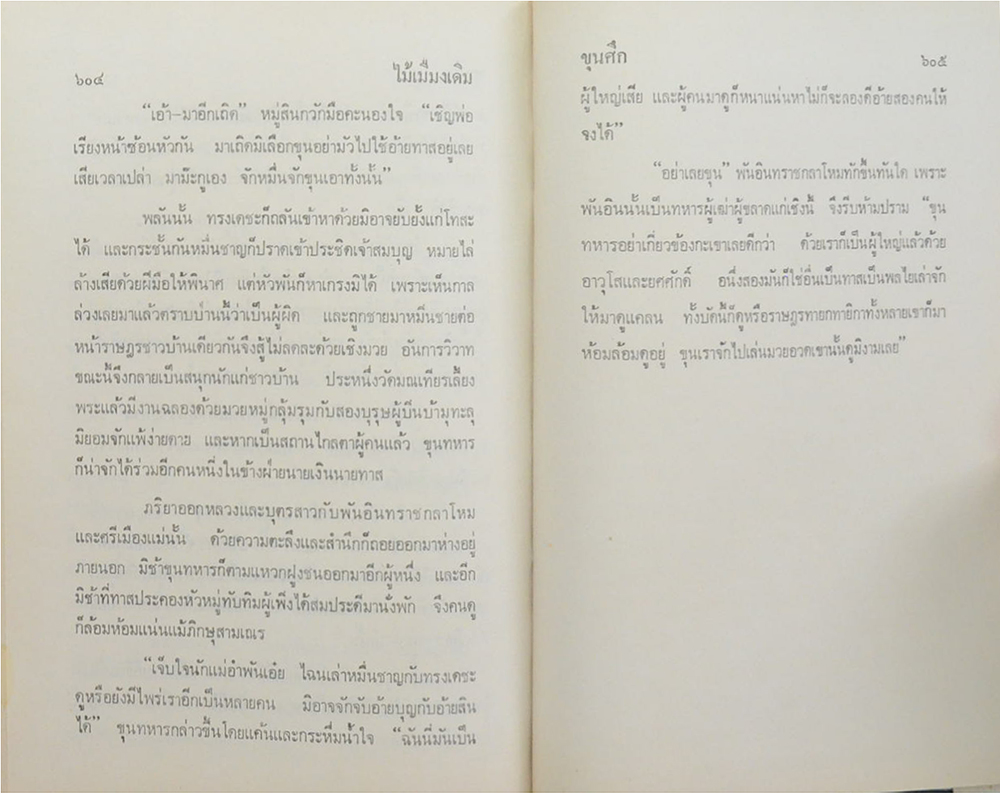 ๖๐๔ ไม้เมืองเดิม
“เอ้า–มาอีกเถิด” หมู่สินกวักมือคะนองใจ “เชิญพ่อ
เรียงหน้าซ้อนหัวกัน มาเถิดมิเลือกขุนอย่ามัวไปใช้อ้ายทาสอยู่เลย
เสียเวลาเปล่า มาม๊ะกูเอง จักหมื่นจักขุนเอาทั้งนั้น”
พลันนั้น ทรงเดชะก็ถลันเข้าหาด้วยมิอาจยับยั้งแก่โทสะ
ได้ และกระชั้นกันหมื่นชาญก็ปราดเข้าประชิดเจ้าสมบุญ หมายไล่
ล้างเสียด้วยฝีมือให้พินาศ แต่หัวพันก็หาเกรงมิได้ เพราะเห็นกาล
ล่วงเลยมาแล้วตราบบ่านนี้ว่าเป็นผู้ผิด และถูกชายมาหมิ่นชายต่อ
หน้าราษฎรชาวบ้านเดียวกันจึงสู้ไม่ลดละด้วยเชิงมวย อันการวิวาท
ขณะนี้จึงกลายเป็นสนุกนักแก่ชาวบ้าน ประหนึ่งวัดมณเฑียรเลี้ยง
พระแล้วมีงานฉลองด้วยมวยหมู่กลุ้มรุมกับสองบุรุษผู้บึนบ้ามุทะลุ
มิยอมจักแพ้ง่ายดาย และหากเป็นสถานไกลตาผู้คนแล้ว ขุนทหาร
ก็น่าจักได้ร่วมอีกคนหนึ่งในข้างฝ่ายนายเงินนายทาส
ภริยาออกหลวงและบุตรสาวกับพันอินทราชกลาโหม
และศรีเมืองแม่นั้น ด้วยความตะลึงและสำนึกก็ถอยออกมาห่างอยู่
ภายนอก มิช้าขุนทหารก็ตามแหวกฝูงชนออกมาอีกผู้หนึ่ง และอีก
มิช้าที่ทาสประคองหัวหมู่ทับทิมผู้เพิ่งได้สมประดีมานั่งพัก จึงคนดู
ก็ล้อมห้อมแน่นแม้ภิกษุสามเณร
“เจ็บใจนักแม่อำพันเอ๋ย ไฉนเล่าหมื่นชาญกับทรงเดชะ
ดูหรือยังมีไพร่เราอีกเป็นหลายคน มิอาจจักจับอ้ายบุญกับอ้ายสิน
ได้” ขุนทหารกล่าวขึ้นโดยแค้นและกระหึ่มน้ำใจ “ฉันนี่มันเป็น
ขุนศึก ๖๐๕
ผู้ใหญ่เสีย และผู้คนมาดูก็หนาแน่นหาไม่ก็จะลองดีอ้ายสองคนให้
จงได้”
“อย่าเลยขุน” พันอินทราชกลาโหมทักขึ้นทันใด เพราะ
พันอินนั้นเป็นทหารผู้เฒ่าผู้ฉลาดแก่เชิงนี้ จึงรีบห้ามปราม “ขุน
ทหารอย่าเกี่ยวข้องกะเขาเลยดีกว่า ด้วยเราก็เป็นผู้ใหญ่แล้วด้วย
อาวุโสและยศศักดิ์ อนึ่งสองมันก็ใช่อื่นเป็นทาสเป็นพลไยเล่าจัก
ให้มาดูแคลน ทั้งบัดนี้ก็ดูหรือราษฎรทายกทายิกาทั้งหลายเขาก็มา
ห้อมล้อมดูอยู่ ขุนเราจักไปเล่นมวยอวดเขานั้นดูมิงามเลย”